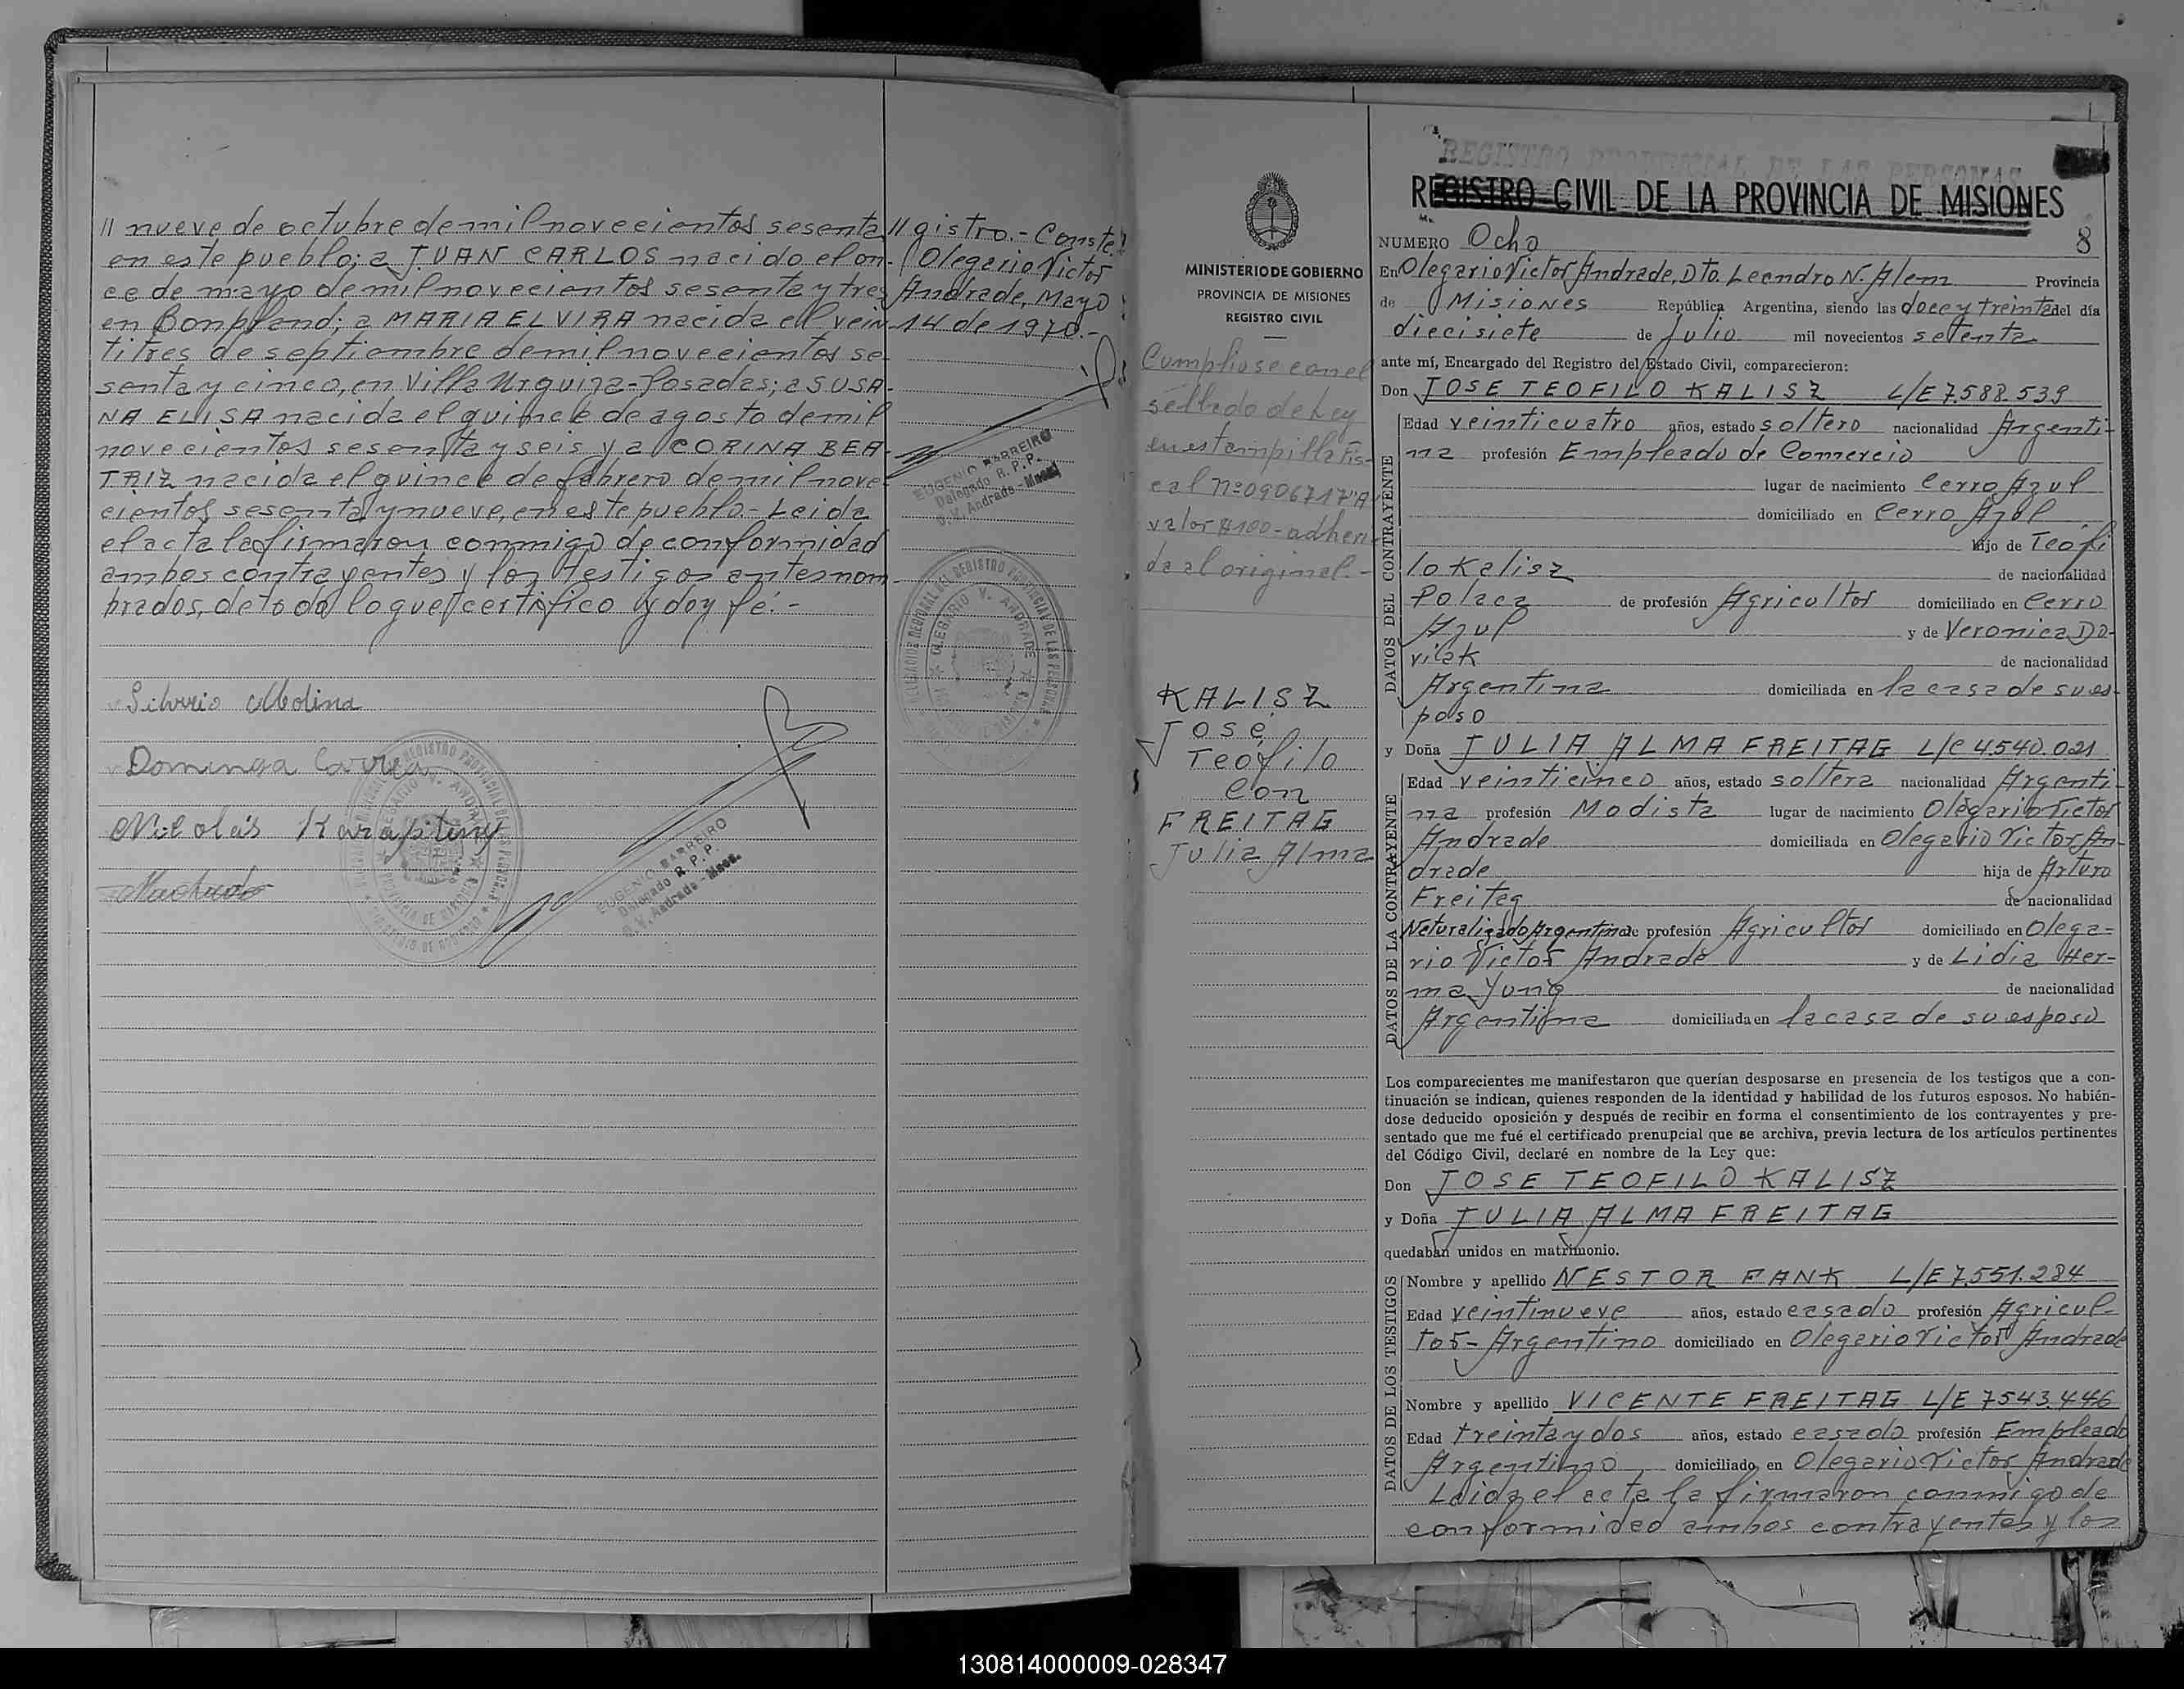 // nueve de octubre de mil novecientos sesenta
en este pueblo; a JUAN CARLOS nacido el on-
ce de mayo de mil novecientos sesenta y tres
en Bonpland; a MARIA ELVIRA nacida el vein
titres de septiembre de mil novecientos se-
senta y cinco, en Villa Urquiza-Posadas; a SUSA-
NA ELISA nacida el quince de agosto de mil
novecientos sesenta y seis y a CORINA BEA-
TRIZ nacida el quince de febrero de mil nove-
cientos sesenta y nueve, en este pueblo.- Leida
el acta la firmaron conmigo de conformidad
ambos contrayentes y los testigos antes nom-
brados, de todo lo que certifico y doy fé.-
Silverio Molina
Dominga Correa
Nicolás Karapitny
// gistro.- Conste!
Olegario Victor
Andrade, Mayo
14 de 1970.-
EUGENIO BARREIRO
Delegado R. P. P.
O. V. Andrade - Mnes.
DELEGACION REGIONAL DEL REGISTRO PROVINCIAL DE LAS PERSONAS
OLEGARIO V. ANDRADE
EUGENIO BARREIRO
Delegado R. P. P.
O. V. Andrade - Mnes.
MINISTERIO DE GOBIERNO
PROVINCIA DE MISIONES
REGISTRO CIVIL
Cumpliose con el
sellado de Ley
en estampilla fis-
cal nº 0906717"A
valor $100- adheri
da al original.-
KALISZ
José
Teófilo
con
FREITAG
Julia Alma
REGISTRO PROVINCIAL DE LAS PERSONAS
REGISTRO CIVIL DE LA PROVINCIA DE MISIONES
NUMERO Ocho 8
En Olegario Victor Andrade, Dto. Leandro N. Alem Provincia
de Misiones República Argentina, siendo las doce y treinta del día
diecisiete de Julio mil novecientos setenta
ante mí, Encargado del Registro del Estado Civil, comparecieron:
Don JOSE TEOFILO KALISZ L/E 7.588.539
DATOS DEL CONTRAYENTE
Edad veinticuatro años, estado soltero nacionalidad Argenti-
na profesión Empleado de Comercio
lugar de nacimiento Cerro Azul
domiciliado en Cerro Azul
hijo de Teófi
lo Kalisz de nacionalidad
Polaca de profesión Agricultor domiciliado en Cerro
Azul y de Veronica Do-
vilak de nacionalidad
Argentina domiciliada en la casa de su es-
poso
y Doña JULIA ALMA FREITAG L/C 4.540.021
DATOS DE LA CONTRAYENTE
Edad veinticinco años, estado soltera nacionalidad Argenti-
na profesión Modista lugar de nacimiento Olegario Victor
Andrade domiciliada en Olegario Victor An-
drade hija de Arturo
Freitag de nacionalidad
Naturalizado Argentino de profesión Agricultor domiciliado en Olega=
rio Victor Andrade y de Lidia Her=
ma Yung de nacionalidad
Argentina domiciliada en la casa de su esposo
Los comparecientes me manifestaron que querían desposarse en presencia de los testigos que a con-
tinuación se indican, quienes responden de la identidad y habilidad de los futuros esposos. No habién-
dose deducido oposición y después de recibir en forma el consentimiento de los contrayentes y pre-
sentado que me fué el certificado prenupcial que se archiva, previa lectura de los artículos pertinentes
del Código Civil, declaré en nombre de la Ley que:
Don JOSE TEOFILO KALISZ
y Doña JULIA ALMA FREITAG
quedaban unidos en matrimonio.
DATOS DE LOS TESTIGOS
Nombre y apellido NESTOR FANK L/E 7.551.284
Edad veintinueve años, estado casado profesión Agricul-
tor- Argentino domiciliado en Olegario Victor Andrade
Nombre y apellido VICENTE FREITAG L/E 7543.446
Edad treinta y dos años, estado casado profesión Empleado
Argentino domiciliado en Olegario Victor Andrade
Leida el acta la firmaron conmigo de
conformidad ambos contrayentes y los
130814000009-028347